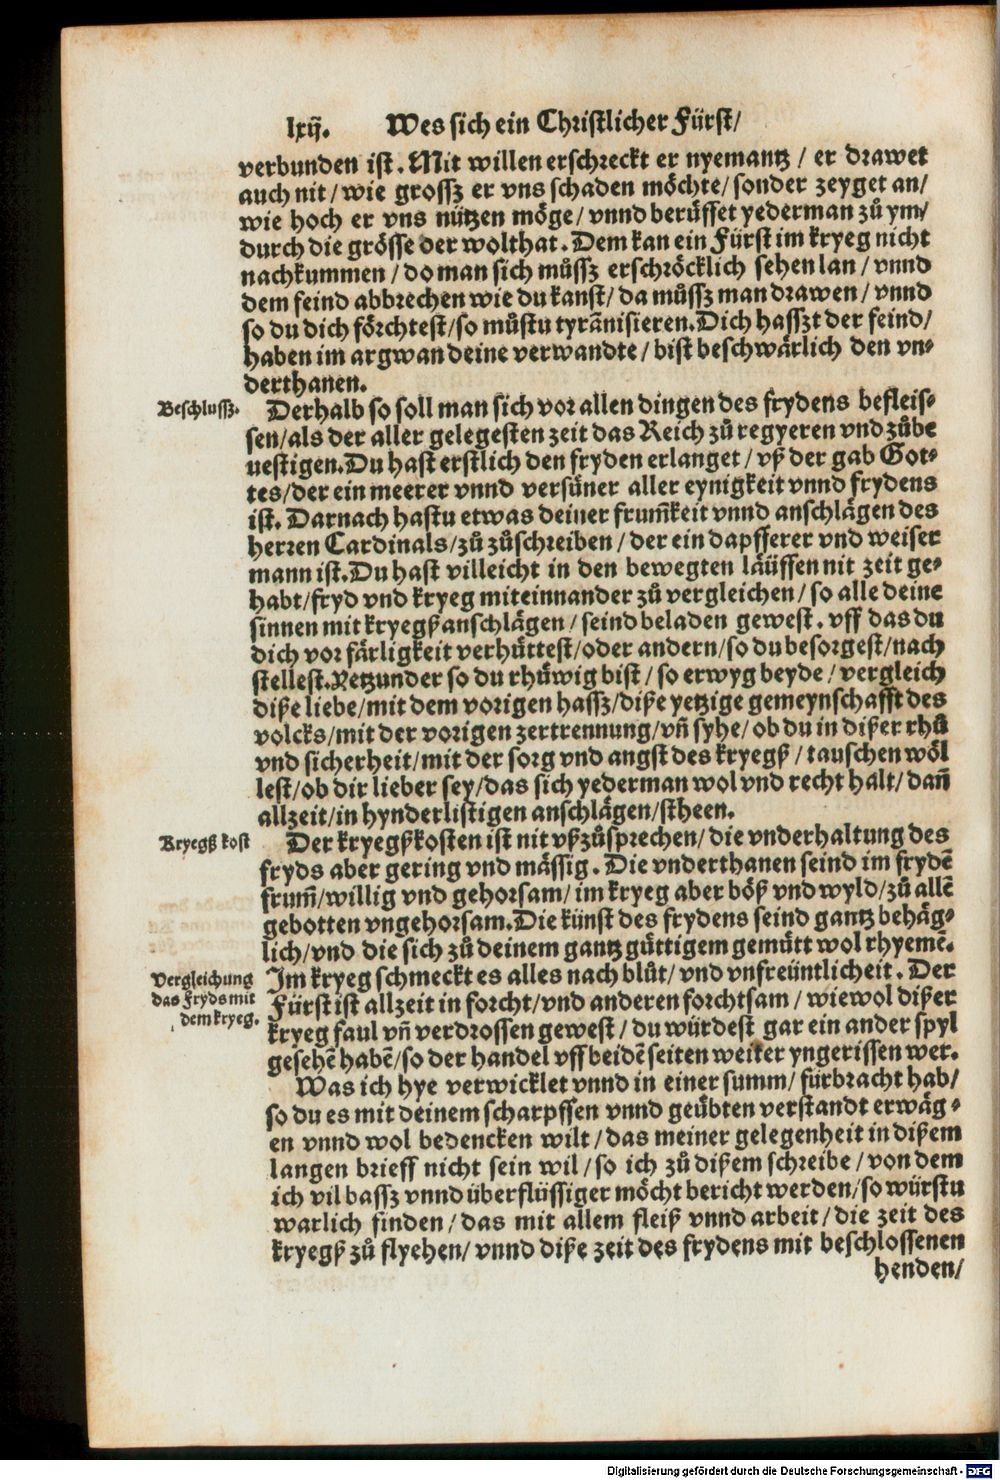 lxij. Wes sich ein Christlicher Fürst/
verbunden ist. Mit willen erschreckt er nyemantz / er drawet
auch nit / wie grossz er vns schaden möchte / sonder zeyget an /
wie hoch er vns nützen möge / vnnd berüffet yederman zů ym /
durch die grösse der wolthat. Dem kan ein Fürst im kryeg nicht
nachkummen / do man sich můssz erschröcklich sehen lan / vnnd
dem feind abbrechen wie du kanst / da můssz man drawen / vnnd
so du dich förchtest / so můstu tyrānisieren. Dich hasszt der feind /
haben im argwan deine verwandte / bist beschwärlich den vn⸗
derthanen.
Beschlussz.
Derhalb so soll man sich vor allen dingen des frydens befleis⸗
sen / als der aller gelegesten zeit das Reich zů regyeren vnd zůbe
uestigen. Du hast erstlich den fryden erlanget / vß der gab Got⸗
tes / der ein meerer vnnd versüner aller eynigkeit vnnd frydens
ist. Darnach hastu etwas deiner frum̄keit vnnd anschlägen des
herren Cardinals / zů zůschreiben / der ein dapfferer vnd weiser
mann ist. Du hast villeicht in den bewegten läüffen nit zeit ge⸗
habt / fryd vnd kryeg miteinnander zů vergleichen / so alle deine
sinnen mit kryegß anschlägen / seind beladen gewest. vff das du
dich vor färligkeit verhüttest / oder andern / so du besorgest / nach
stellest. Yetzunder so du rhüwig bist / so erwyg beyde / vergleich
diße liebe / mit dem vorigen hassz / diße yetzige gemeynschafft des
volcks / mit der vorigen zertrennung / vn̄ syhe / ob du in dißer rhů
vnd sicherheit / mit der sorg vnd angst des kryegß / tauschen wöl
lest / ob dir lieber sey / das sich yederman wol vnd recht halt / dan̄
allzeit / in hynderlistigen anschlägen / stheen.
Kryegß kost
Der kryegßkosten ist nit vßzůsprechen / die vnderhaltung des
fryds aber gering vnd mässig. Die vnderthanen seind im frydē
frum̄ / willig vnd gehorsam / im kryeg aber böß vnd wyld / zů allē
gebotten vngehorsam. Die künst des frydens seind gantz behäg⸗
lich / vnd die sich zů deinem gantz güttigem gemütt wol rhyemē.
Vergleichung
das Fryds mit
dem kryeg.
Im kryeg schmeckt es alles nach blůt / vnd vnfreüntlicheit. Der
Fürst ist allzeit in forcht / vnd anderen forchtsam / wiewol dißer
kryeg faul vn̄ verdrossen gewest / du würdest gar ein ander spyl
gesehē habē / so der handel vff beidē seiten weiter yngerissen wer.
Was ich hye verwicklet vnnd in einer summ / fürbracht hab /
so du es mit deinem scharpffen vnnd geübten verstandt erwäg⸗
en vnnd wol bedencken wilt / das meiner gelegenheit in dißem
langen brieff nicht sein wil / so ich zů dißem schreibe / von dem
ich vil bassz vnnd überflüssiger möcht bericht werden / so würstu
warlich finden / das mit allem fleiß vnnd arbeit / die zeit des
kryegß zů flyehen / vnnd diße zeit des frydens mit beschlossenen
henden /
Digitalisierung gefördert durch die Deutsche Forschungsgemeinschaft - DFG